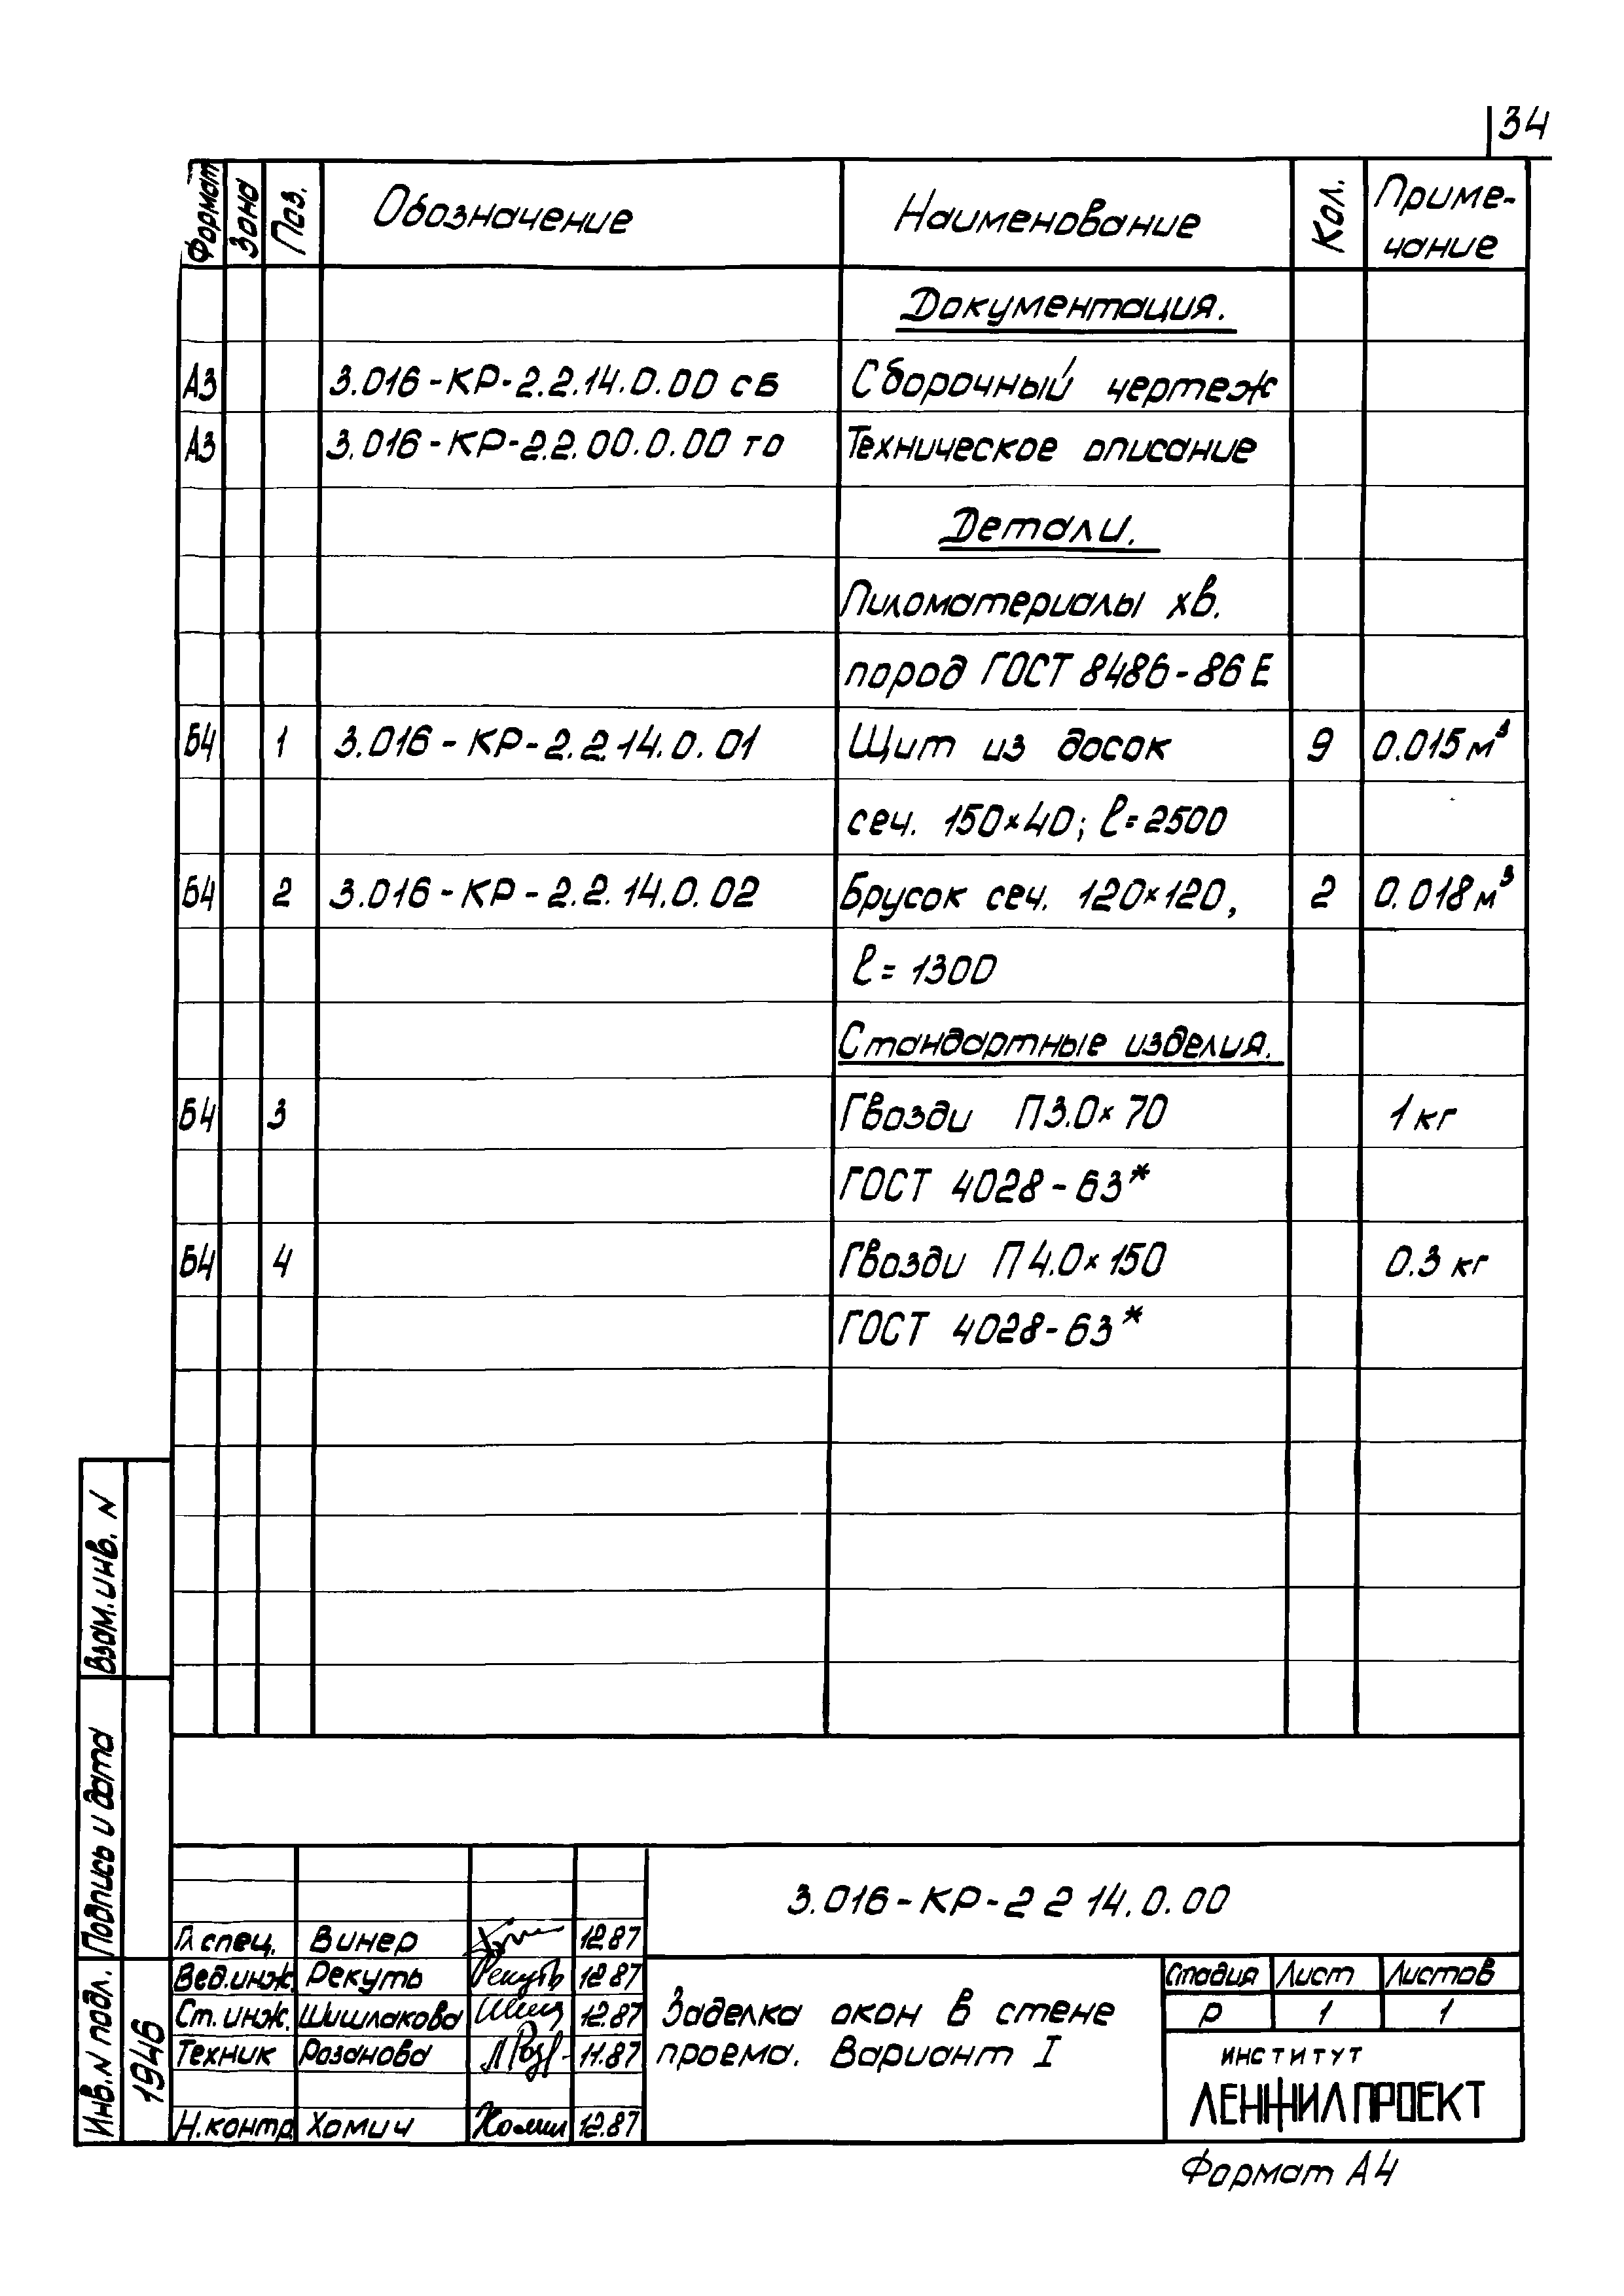 34
Формат Зона Поз. Обозначение Наименование Кол. Приме-
чание
Документация.
А3 3.016-КР-2.2.14.0.00 сб Сборочный чертеж
А3 3.016-КР-2.2.00.0.00 то Техническое описание
Детали.
Пиломатериалы хв.
пород ГОСТ 8486-86 Е
Б4 1 3.016-КР-2.2.14.0.01 Щит из досок 9 0.015 м³
сеч. 150×40; ℓ=2500
Б4 2 3.016-КР-2.2.14.0.02 Брусок сеч. 120×120, 2 0.018 м³
ℓ=1300
Стандартные изделия.
Б4 3 Гвозди П3.0×70 1 кг
ГОСТ 4028-63*
Б4 4 Гвозди П4.0×150 0.3 кг
ГОСТ 4028-63*
Взам. инв. N
Подпись и дата
Инв. N подл.
1946
3.016-КР-2 2 14.0.00
Гл спец. Винер 12.87
Вед.инж. Рекуть Рекуть 12 87
Ст. инж. Шишлакова 12.87
Техник Розанова 11.87
Н.контр Хомич 12.87
Заделка окон в стене
проема. Вариант I
Стадия Лист Листов
Р 1 1
ИНСТИТУТ
ЛЕНЖИЛПРОЕКТ
Формат А4